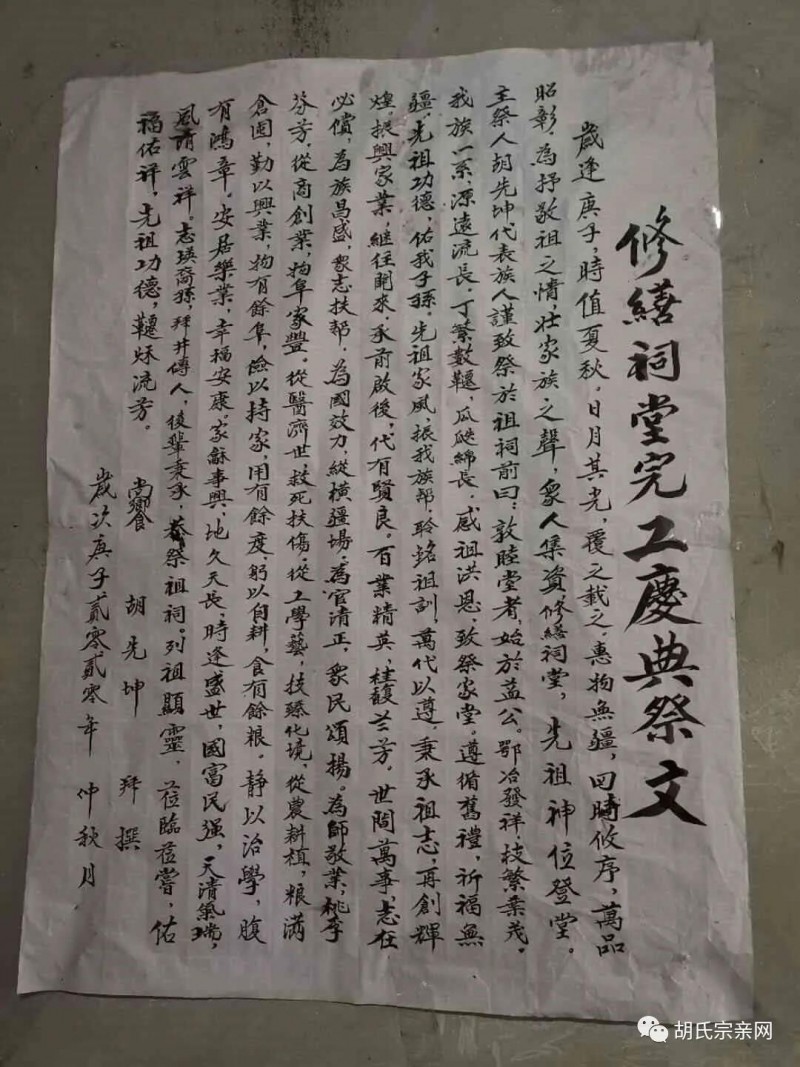 修繕祠堂完工慶典祭文
歲逢庚子，時值夏秋。日月其光，覆之載之，惠物無疆，四時攸序，萬品
昭彰，為抒敬祖之情，壯家族之聲，衆人集資，修繕祠堂，先祖神位登堂。
主祭人胡先坤代表族人謹致祭於祖祠前曰：敦睦堂者，始於益公。鄂冶發祥，枝繁葉茂。
我族一系，源遠流長，丁繁數韆，瓜瓞綿長，感祖洪恩，致祭家堂。遵循舊禮，祈福無
疆，先祖功德，佑我子孫，先祖家風，振我族幫，聆銘祖訓，萬代以遵，秉承祖志，再創輝
煌，振興家業，繼往開來，承前啟後，代有賢良。百業精英，桂馥兰芳。世間萬事，志在
必償，為族昌盛，衆志扶幇，為國效力，縱橫疆場，為官清正，衆民頌揚。為師敬業，桃李
芬芳，從商創業，物阜家豐。從醫濟世，救死扶傷，從工學藝，技臻化境，從農耕植，粮滿
倉囤，勤以興業，物有餘阜，儉以持家，用有餘度，躬以自耕，食有餘粮。静以治學，腹
有鴻章。安居樂業，幸福安康。家龢事興，地久天長，時逢盛世，國富民强，天清氣瑞，
風清雲祥。志瑛裔孫，拜井傳人，後輩秉承，恭祭祖祠。列祖顯靈，莅臨莅嘗，佑
福佑祥，先祖功德，韆秌流芳。
尚饗 胡先坤 拜撰
歲次庚子貳零貳零年 仲秋月
胡氏宗亲网